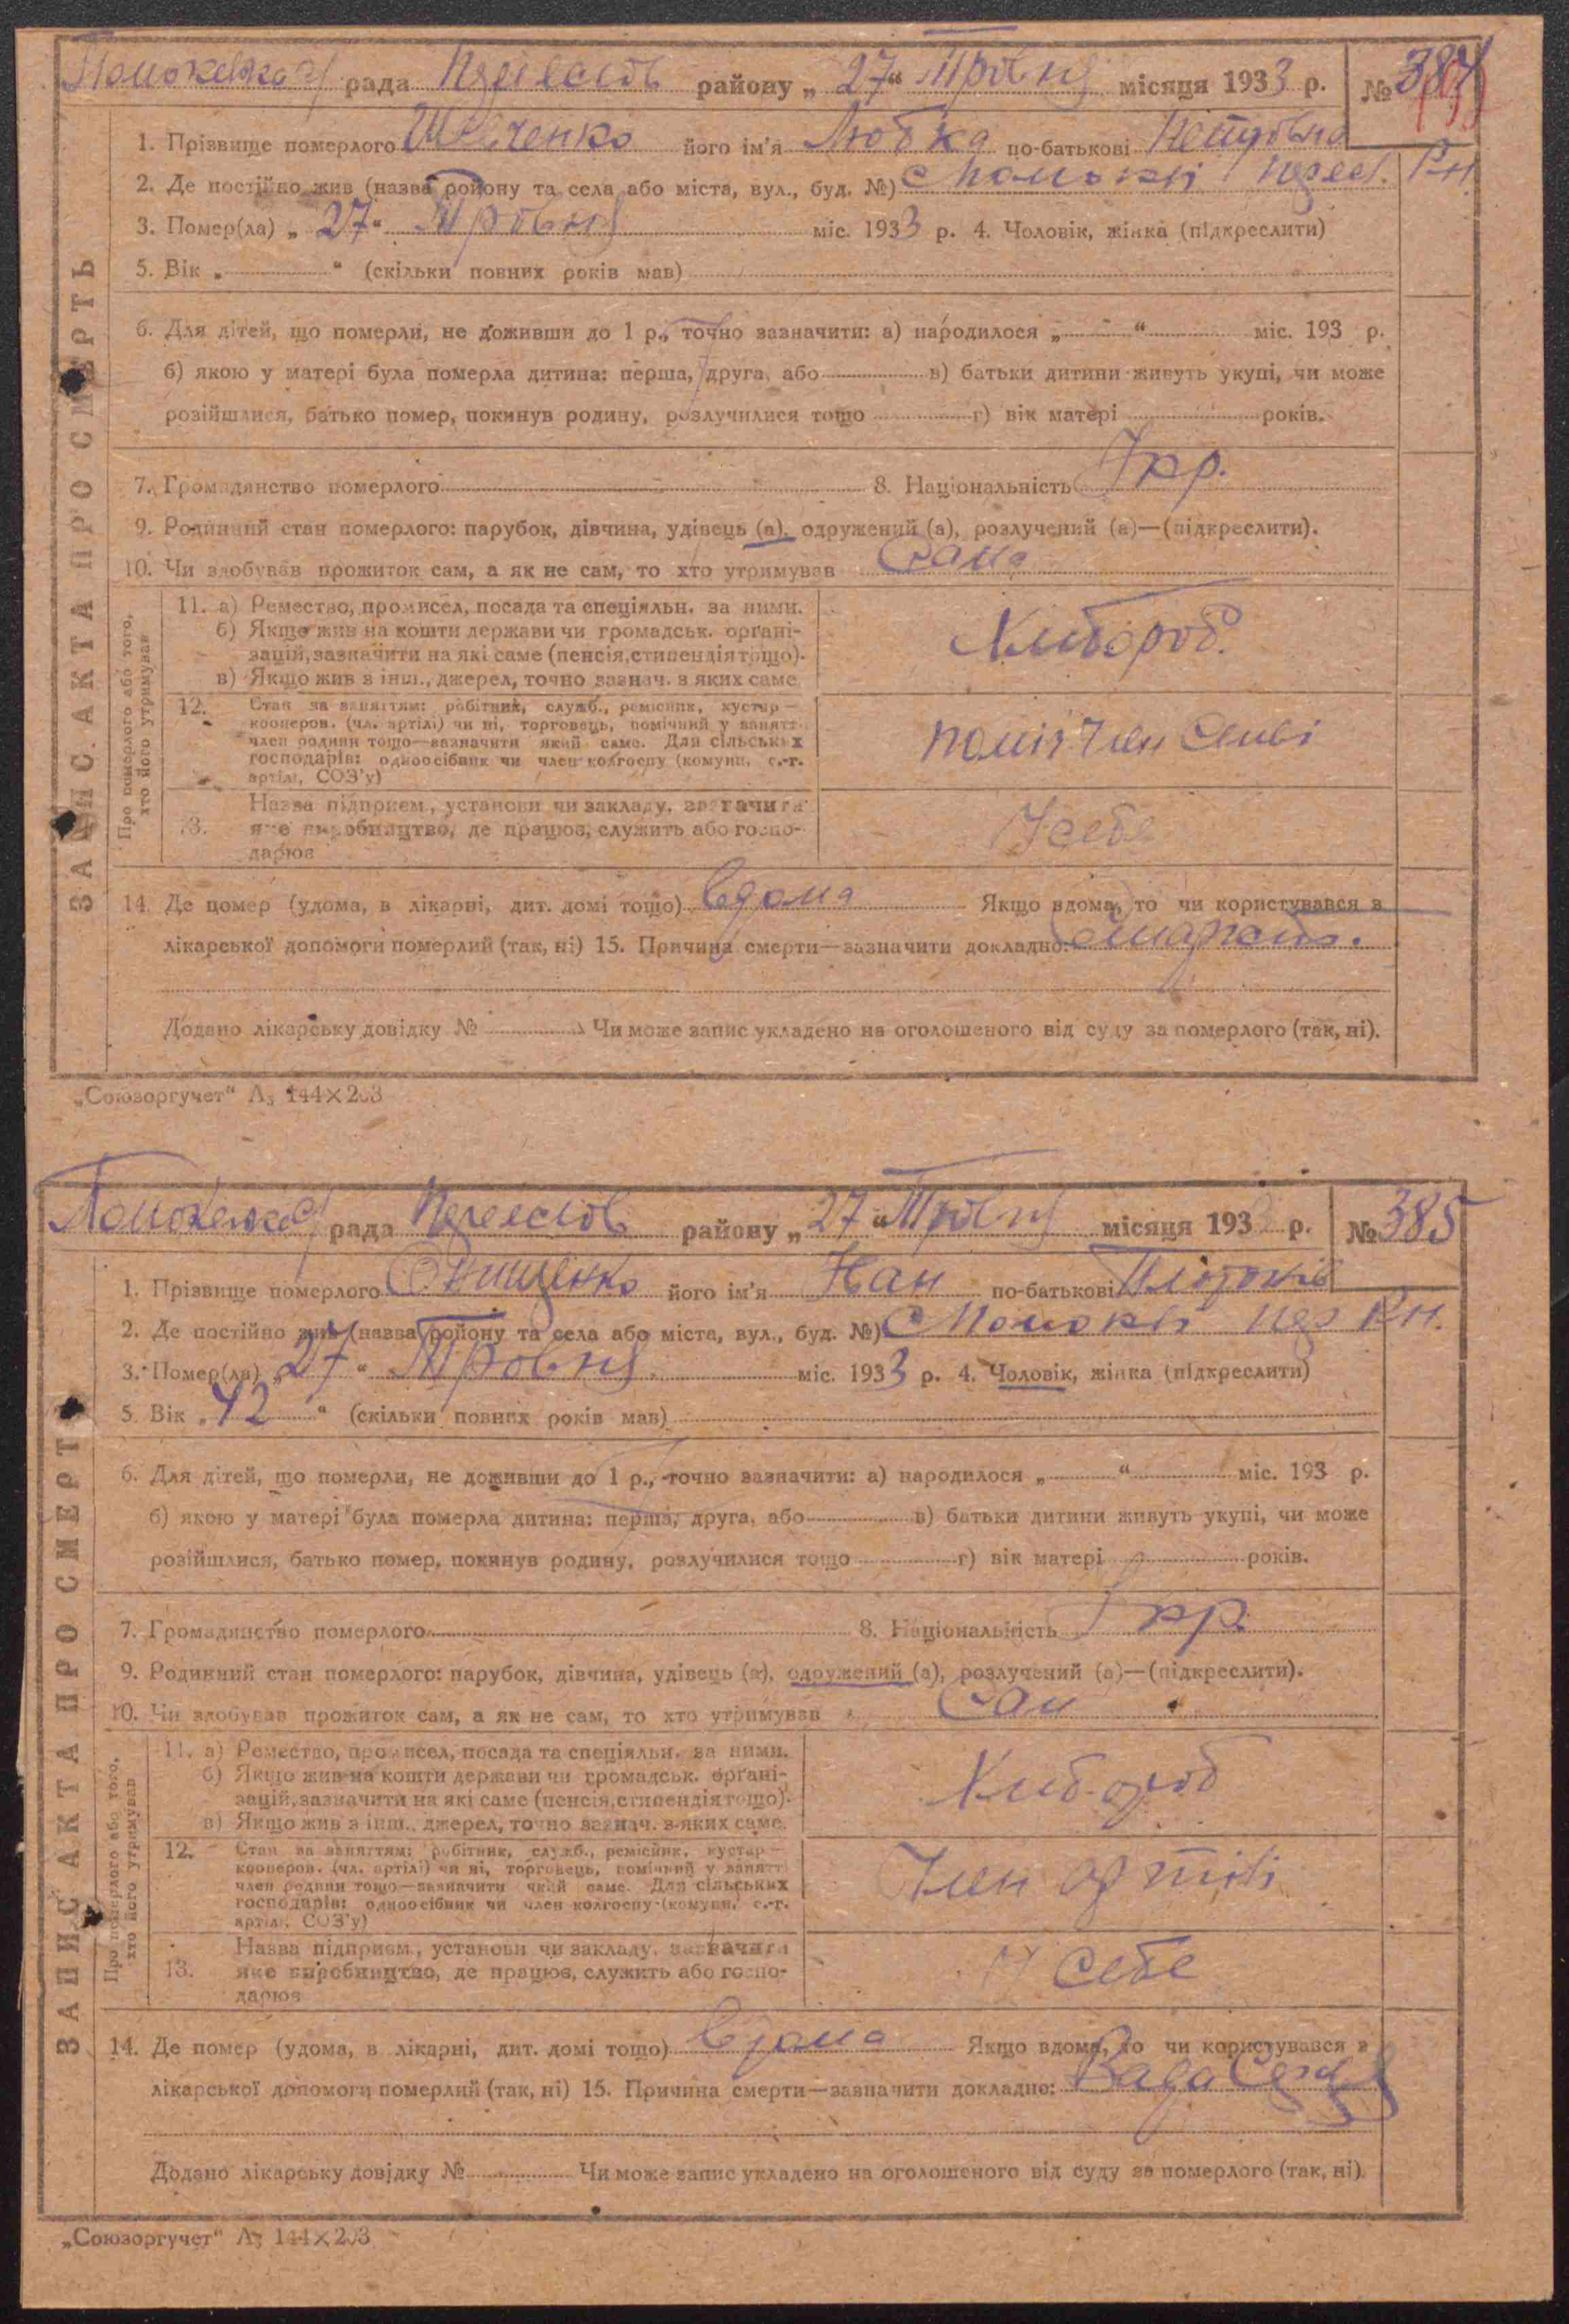 рада району „ 27 “ Тровня місяця 1933 р. № 384
1. Прізвище померлого Шевченко його ім'я Любка по-батькові Петровна
2. Де постійно жив (назва району та села або міста, вул., буд. №) с Помокли
3. Помер(ла) „ 27 “ Тровня міс. 1933 р. 4. Чоловік, жінка (підкреслити)
5. Вік „ “ (скільки повних років мав)
6. Для дітей, що померли, не доживши до 1 р., точно зазначити: а) народилося „ “ міс. 193 р.
б) якою у матері була померла дитина: перша, друга, або в) батьки дитини живуть укупі, чи може
розійшлися, батько помер, покинув родину, розлучилися тощо г) вік матері років.
7. Громадянство померлого 8. Національність Укр.
9. Родинний стан померлого: парубок, дівчина, удівець (а), одружений (а), розлучений (а)—(підкреслити).
10. Чи здобував прожиток сам, а як не сам, то хто утримував Сама
Про померлого або того, хто його утримував
11. а) Ремество, промисел, посада та спеціяльн. за ними.
б) Якщо жив на кошти держави чи громадськ. орґані-
зацій, зазначити на які саме (пенсія, стипендія тощо).
в) Якщо жив з інш., джерел, точно зазнач. з яких саме
Хлибороб.
12. Стан за заняттям: робітник, служб., ремісник, кустар—
кооперов. (чл. артілі) чи ні, торговець, помічний у занятті
член родини тощо—зазначити який саме. Для сільських
господарів: одноосібник чи член колгоспу (комуни, с.-г.
артілі, СОЗ'у)
член Семьі
13. Назва підприєм., установи чи закладу, зазначити
яке виробництво, де працює, служить або госпо-
дарює
У себе
14. Де помер (удома, в лікарні, дит. домі тощо) вдома Якщо вдома, то чи користувався з
лікарської допомоги померлий (так, ні) 15. Причина смерти—зазначити докладно:
Додано лікарську довідку № Чи може запис укладено на оголошеного від суду за померлого (так, ні).
ЗАПИС АКТА ПРО СМЕРТЬ
„Союзоргучет“ Л3 144×203
рада району „ 27 “ Тровня місяця 1933 р. № 385
1. Прізвище померлого Онищенко його ім'я Іван по-батькові
2. Де постійно жив (назва району та села або міста, вул., буд. №) с Помокли пер Рн.
3. Помер(ла) „ 27 “ Тровня міс. 1933 р. 4. Чоловік, жінка (підкреслити)
5. Вік „ 42 “ (скільки повних років мав)
6. Для дітей, що померли, не доживши до 1 р., точно зазначити: а) народилося „ “ міс. 193 р.
б) якою у матері була померла дитина: перша, друга, або в) батьки дитини живуть укупі, чи може
розійшлися, батько помер, покинув родину, розлучилися тощо г) вік матері років.
7. Громадянство померлого 8. Національність Укр.
9. Родинний стан померлого: парубок, дівчина, удівець (а), одружений (а), розлучений (а)—(підкреслити).
10. Чи здобував прожиток сам, а як не сам, то хто утримував Сам
Про померлого або того, хто його утримував
11. а) Ремество, промисел, посада та спеціяльн. за ними.
б) Якщо жив на кошти держави чи громадськ. орґані-
зацій, зазначити на які саме (пенсія, стипендія тощо).
в) Якщо жив з інш., джерел, точно зазнач. з яких саме.
Хлибороб
12. Стан за заняттям: робітник, служб., ремісник, кустар—
кооперов. (чл. артілі) чи ні, торговець, помічний у занятті
член родини тощо—зазначити який саме. Для сільських
господарів: одноосібник чи член колгоспу (комуни, с.-г.
артілі, СОЗ'у)
Член артілі
13. Назва підприєм., установи чи закладу, зазначити
яке виробництво, де працює, служить або госпо-
дарює
У себе
14. Де помер (удома, в лікарні, дит. домі тощо) вдома Якщо вдома, то чи користувався з
лікарської допомоги померлий (так, ні) 15. Причина смерти—зазначити докладно: Вада Серця
Додано лікарську довідку № Чи може запис укладено на оголошеного від суду за померлого (так, ні).
ЗАПИС АКТА ПРО СМЕРТЬ
„Союзоргучет“ Л3 144×203